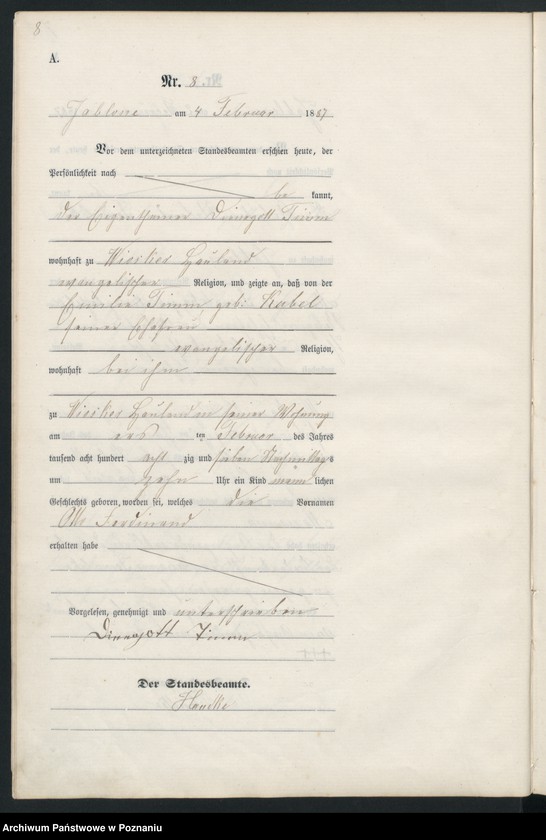 8
A.
Nr. 8.
Jablone am 4 Februar 1887
Vor dem unterzeichneten Standesbeamten erschien heute, der
Persönlichkeit nach
be kannt,
der Eigenthümer Timm
wohnhaft zu Hauland
evangelischer Religion, und zeigte an, daß von der
Emilie Timm geb: Kabel
seiner Ehefrau
evangelischer Religion,
wohnhaft bei ihm
zu Hauland in seiner Wohnung
am ten Februar des Jahres
tausend acht hundert acht zig und sieben Nachmittags
um zehn Uhr ein Kind männ lichen
Geschlechts geboren worden sei, welches die Vornamen
Otto Ferdinand
erhalten habe
Vorgelesen, genehmigt und unterschrieben
Timm
+++
Der Standesbeamte.
Archiwum Państwowe w Poznaniu